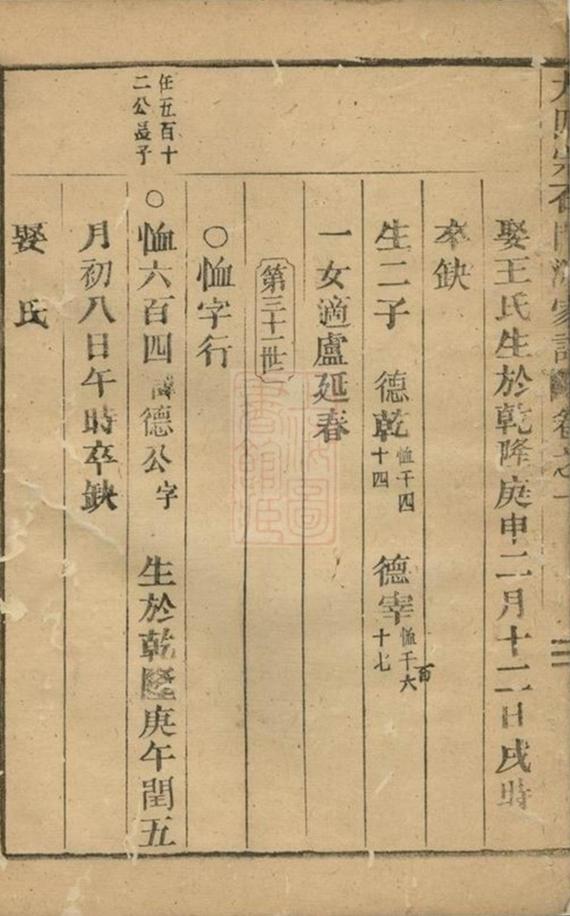 家譜 卷之一
娶王氏生於乾降庚申二月十二日戌時
卒缺
生二子 德乾恤千四十四 德宰恤千六百十七
一女適盧延春
第三十一世
○恤字行
任五百十二公孟子
○恤六百四 諱德公字 生於乾隆庚午閏五
月初八日午時卒缺
娶 氏